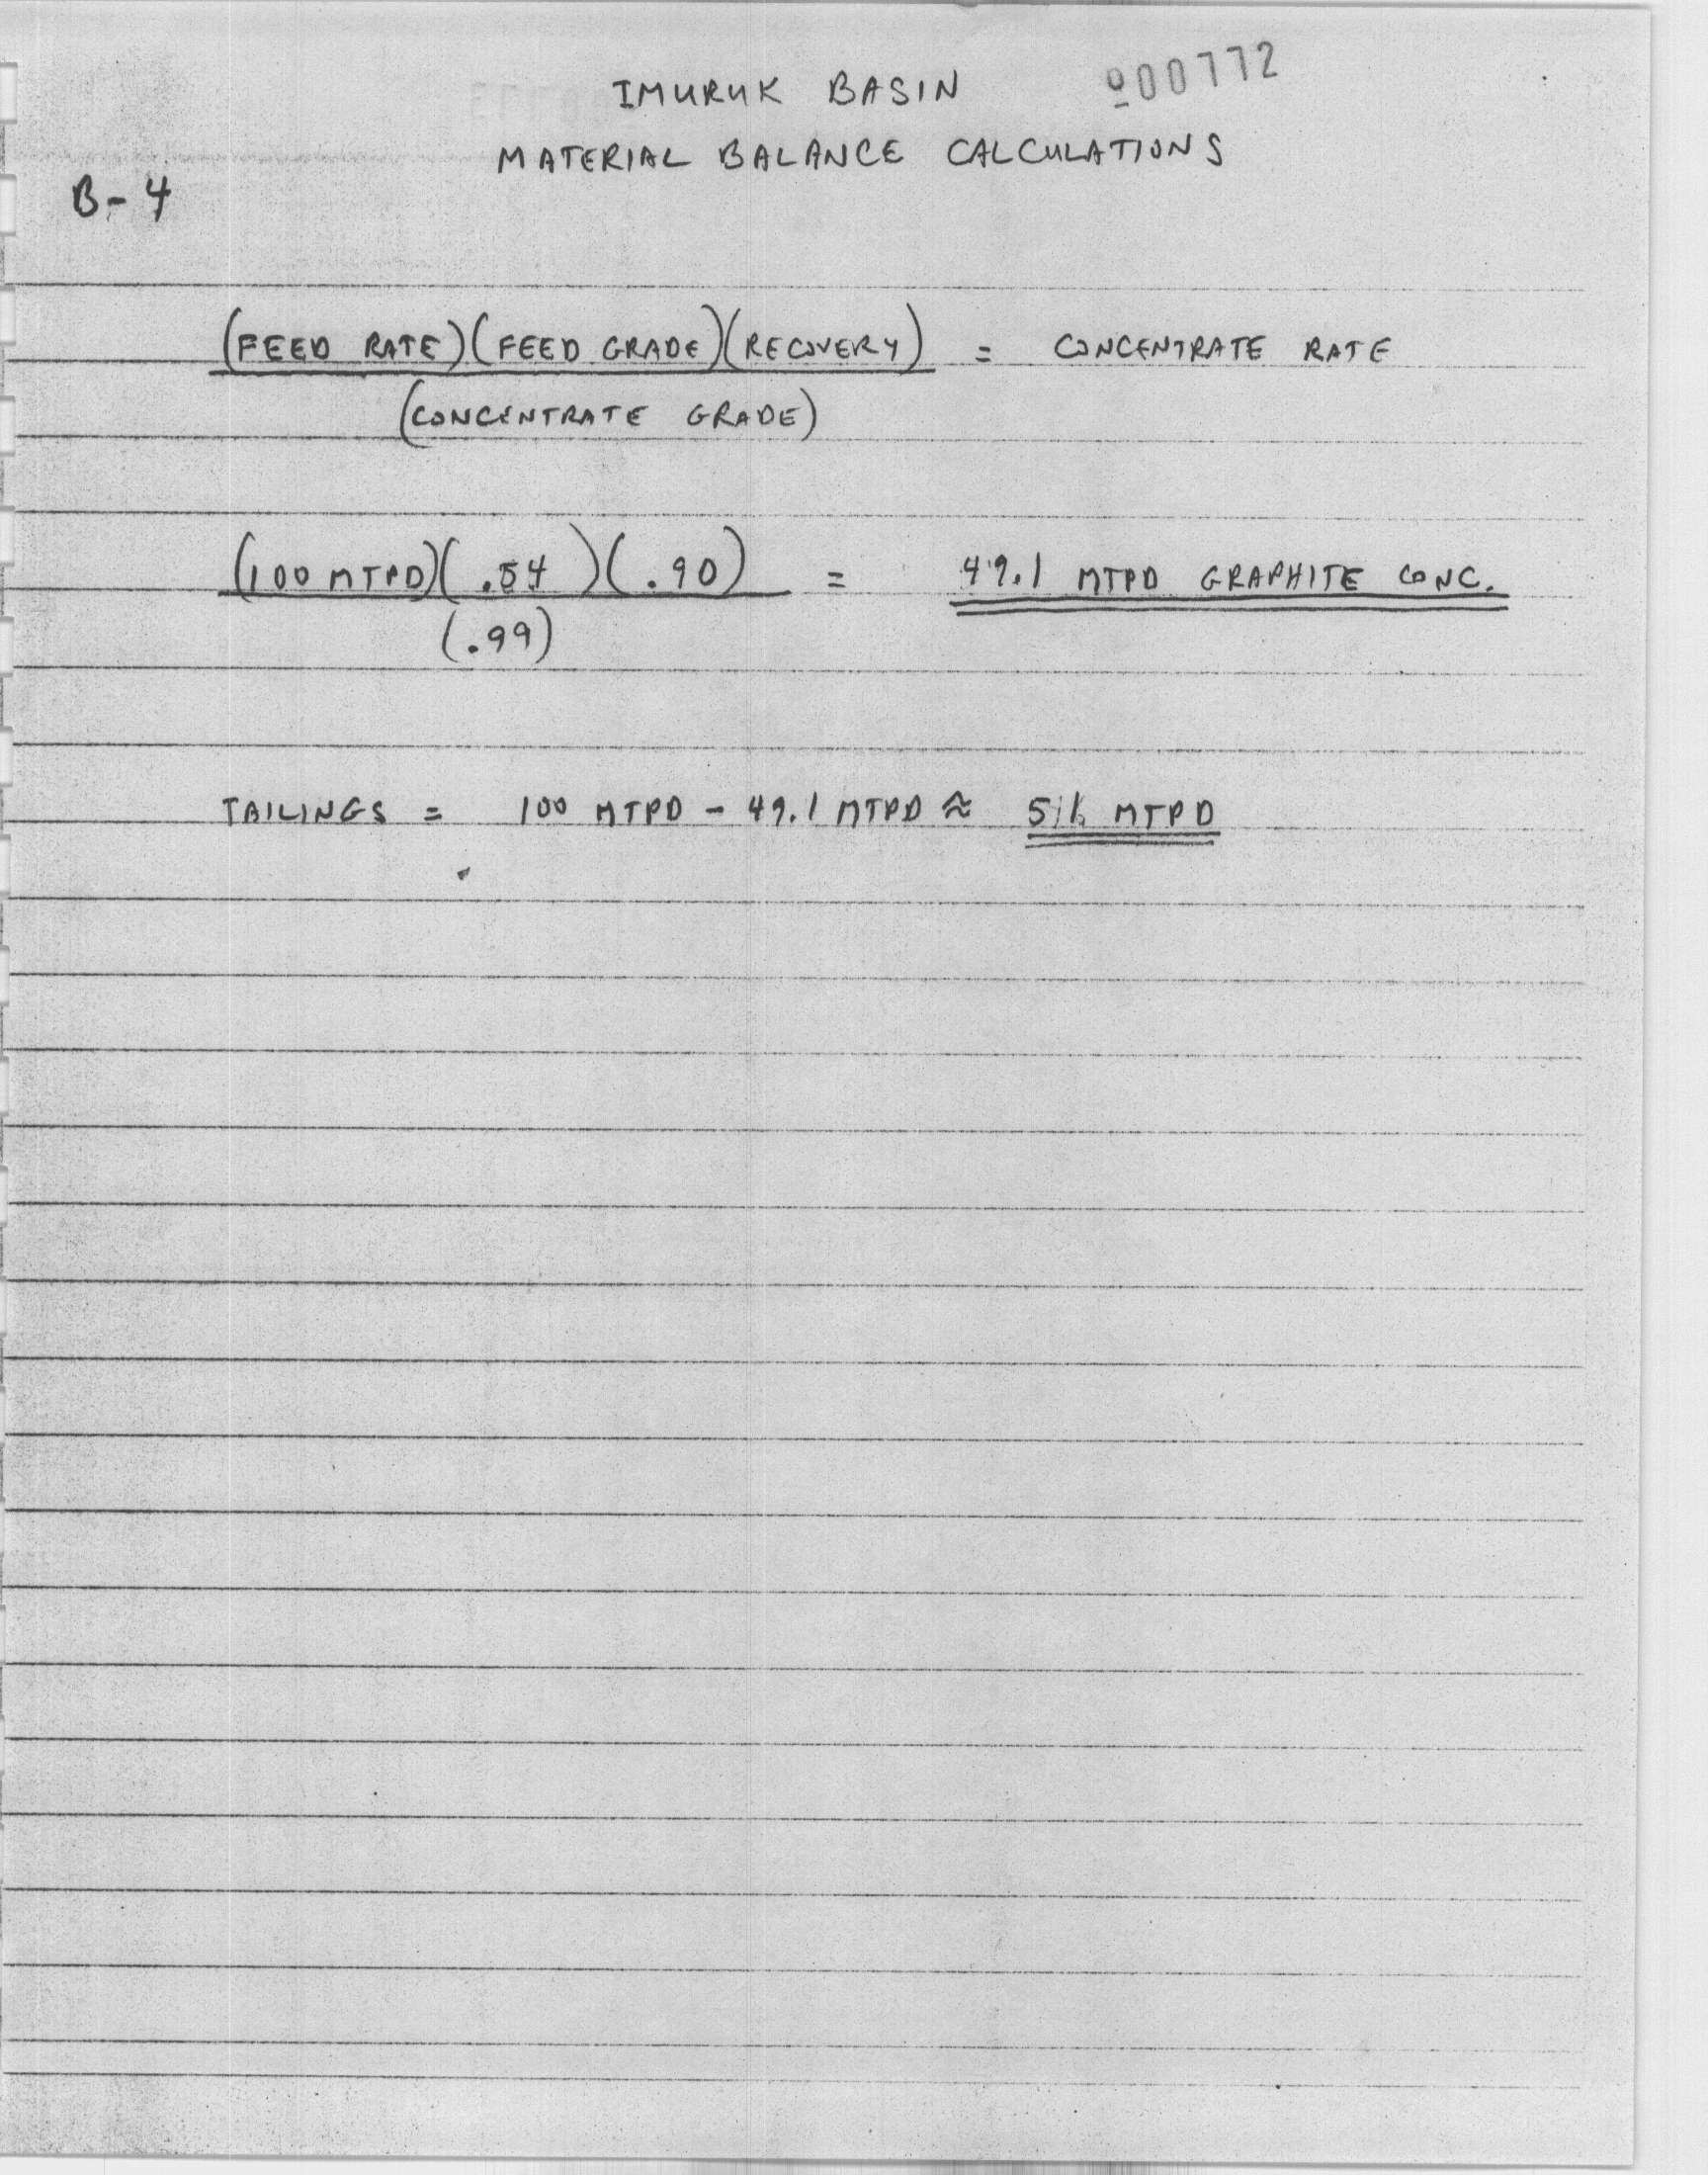 IMURUK BASIN 000772
MATERIAL BALANCE CALCULATIONS
B-4
(FEED RATE)(FEED GRADE)(RECOVERY) = CONCENTRATE RATE
(CONCENTRATE GRADE)
(100 MTPD)(.54)(.90) = 49.1 MTPD GRAPHITE CONC.
(.99)
TAILINGS = 100 MTPD - 49.1 MTPD ≈ MTPD